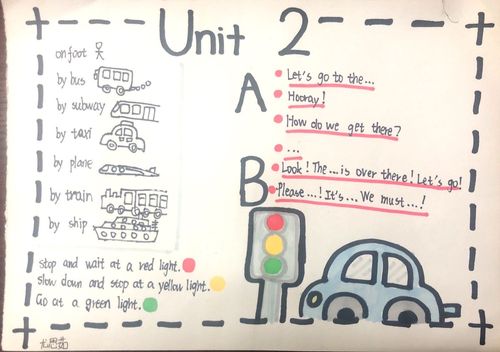 Unit 2
on foot
by bus
by subway
by taxi
by plane
by train
by ship
A
Let's go to the...
Hooray!
How do we get there?
...
B
Look! The ... is over there! Let's go!
Please...! It's... We must...!
stop and wait at a red light.
slow down and stop at a yellow light.
Go at a green light.